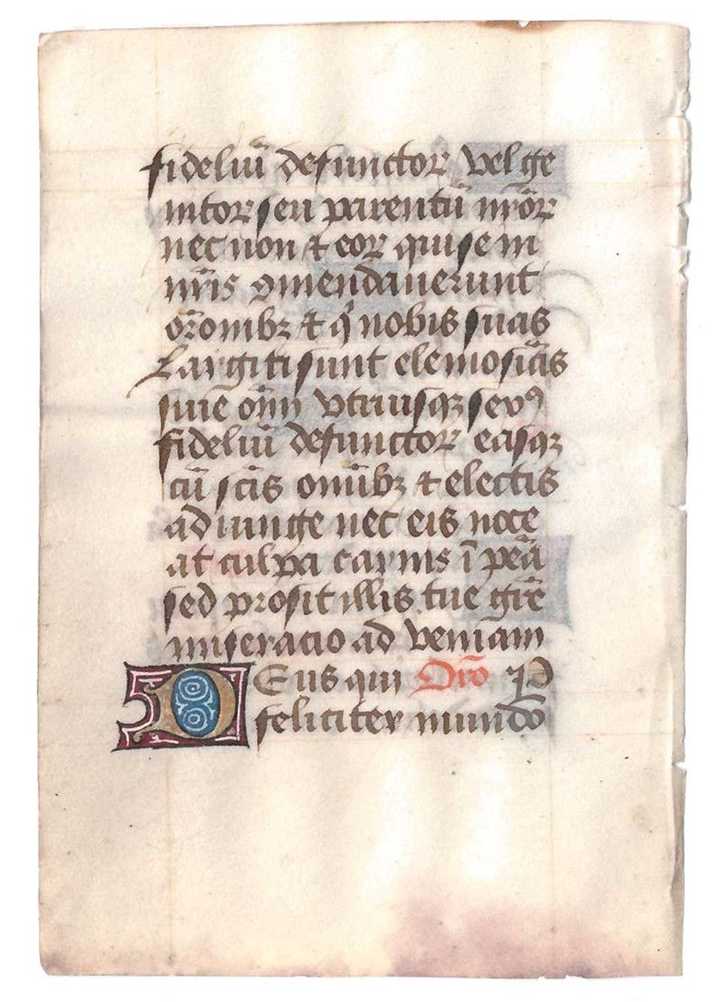 fideliū defunctoꝝ vel ge
nitoꝝ seu parentū nr̄oꝝ
nec non ⁊ eoꝝ qui se in
nr̄is ꝯmendauerunt
or̄onibꝫ ⁊ q̇ nobis suas
Largiti sunt elemosīas
siue om̄ vtriusqꝫ sexꝰ
fideliū defunctoꝝ easqꝫ
cū scīs om̄ibꝫ ⁊ electis
adiunge nec eis noce
at culpa carnis ī pēa
sed prosit illis tue gr̄e
miseracio ad veniam
Deus qui Oro͞ p
feliciter mundo